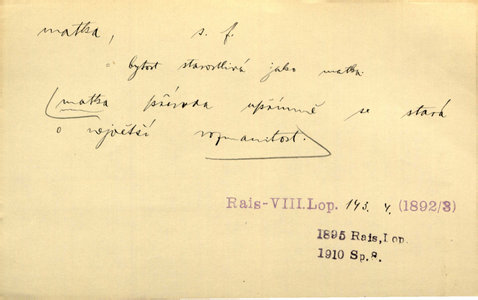 matka, s. f.
bytost starostlivá jako matka.
matka příroda upřímně se stará
o největší rozmanitost.
Rais-VIII.Lop. 143. 4. (1892/3)
1895 Rais, Lop.
1910 Sp.8.